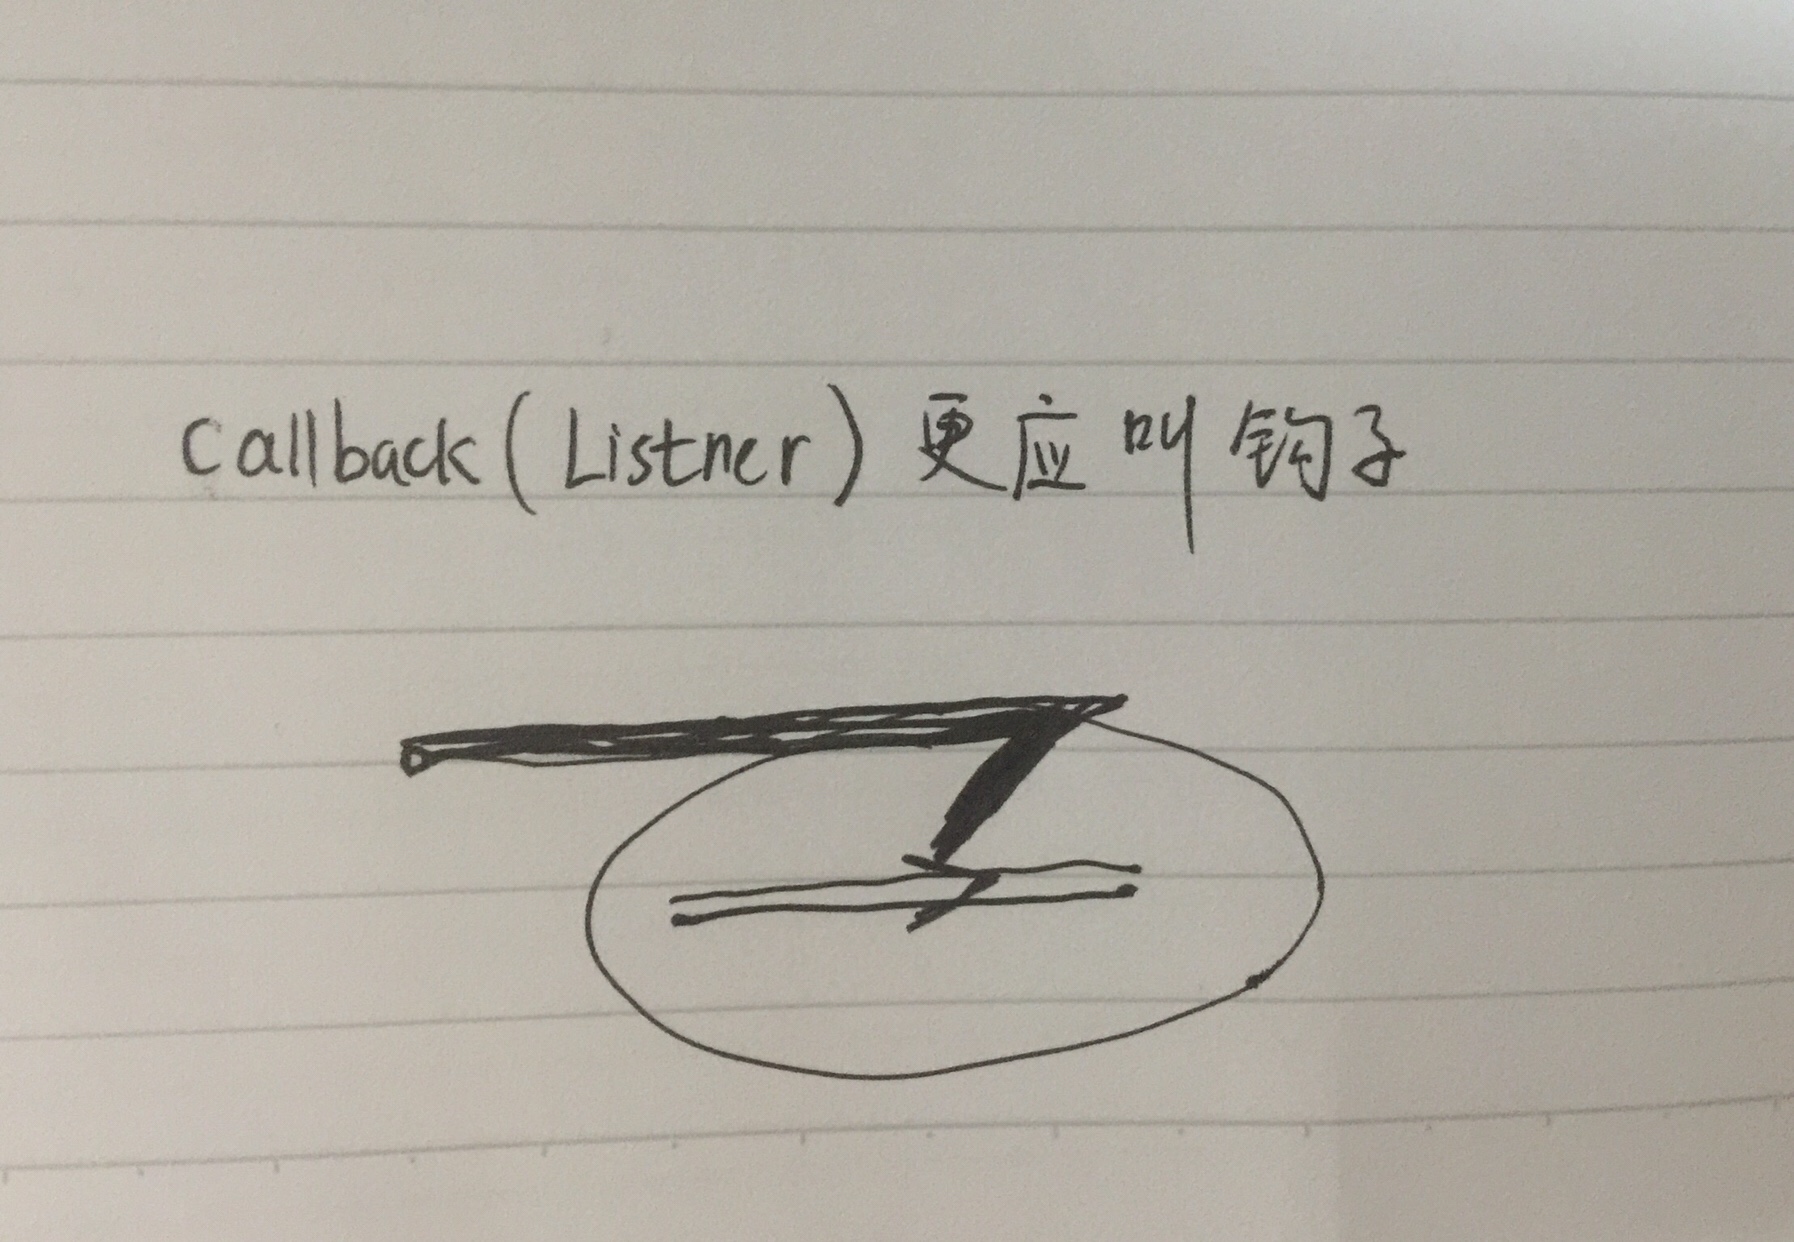 Callback(Listner)更应叫钩子